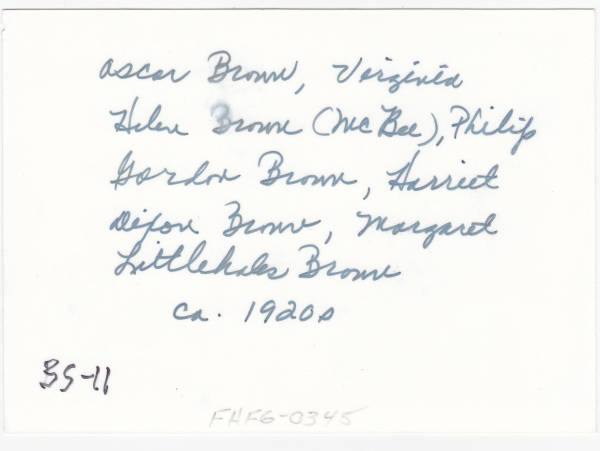 Oscar Brown, Virginia
Helen Brown (McBee), Philip
Gordon Brown, Harriet
Dixon Brown, Margaret
Littlehales Brown
ca. 1920s
BS-11
FHF6-0345